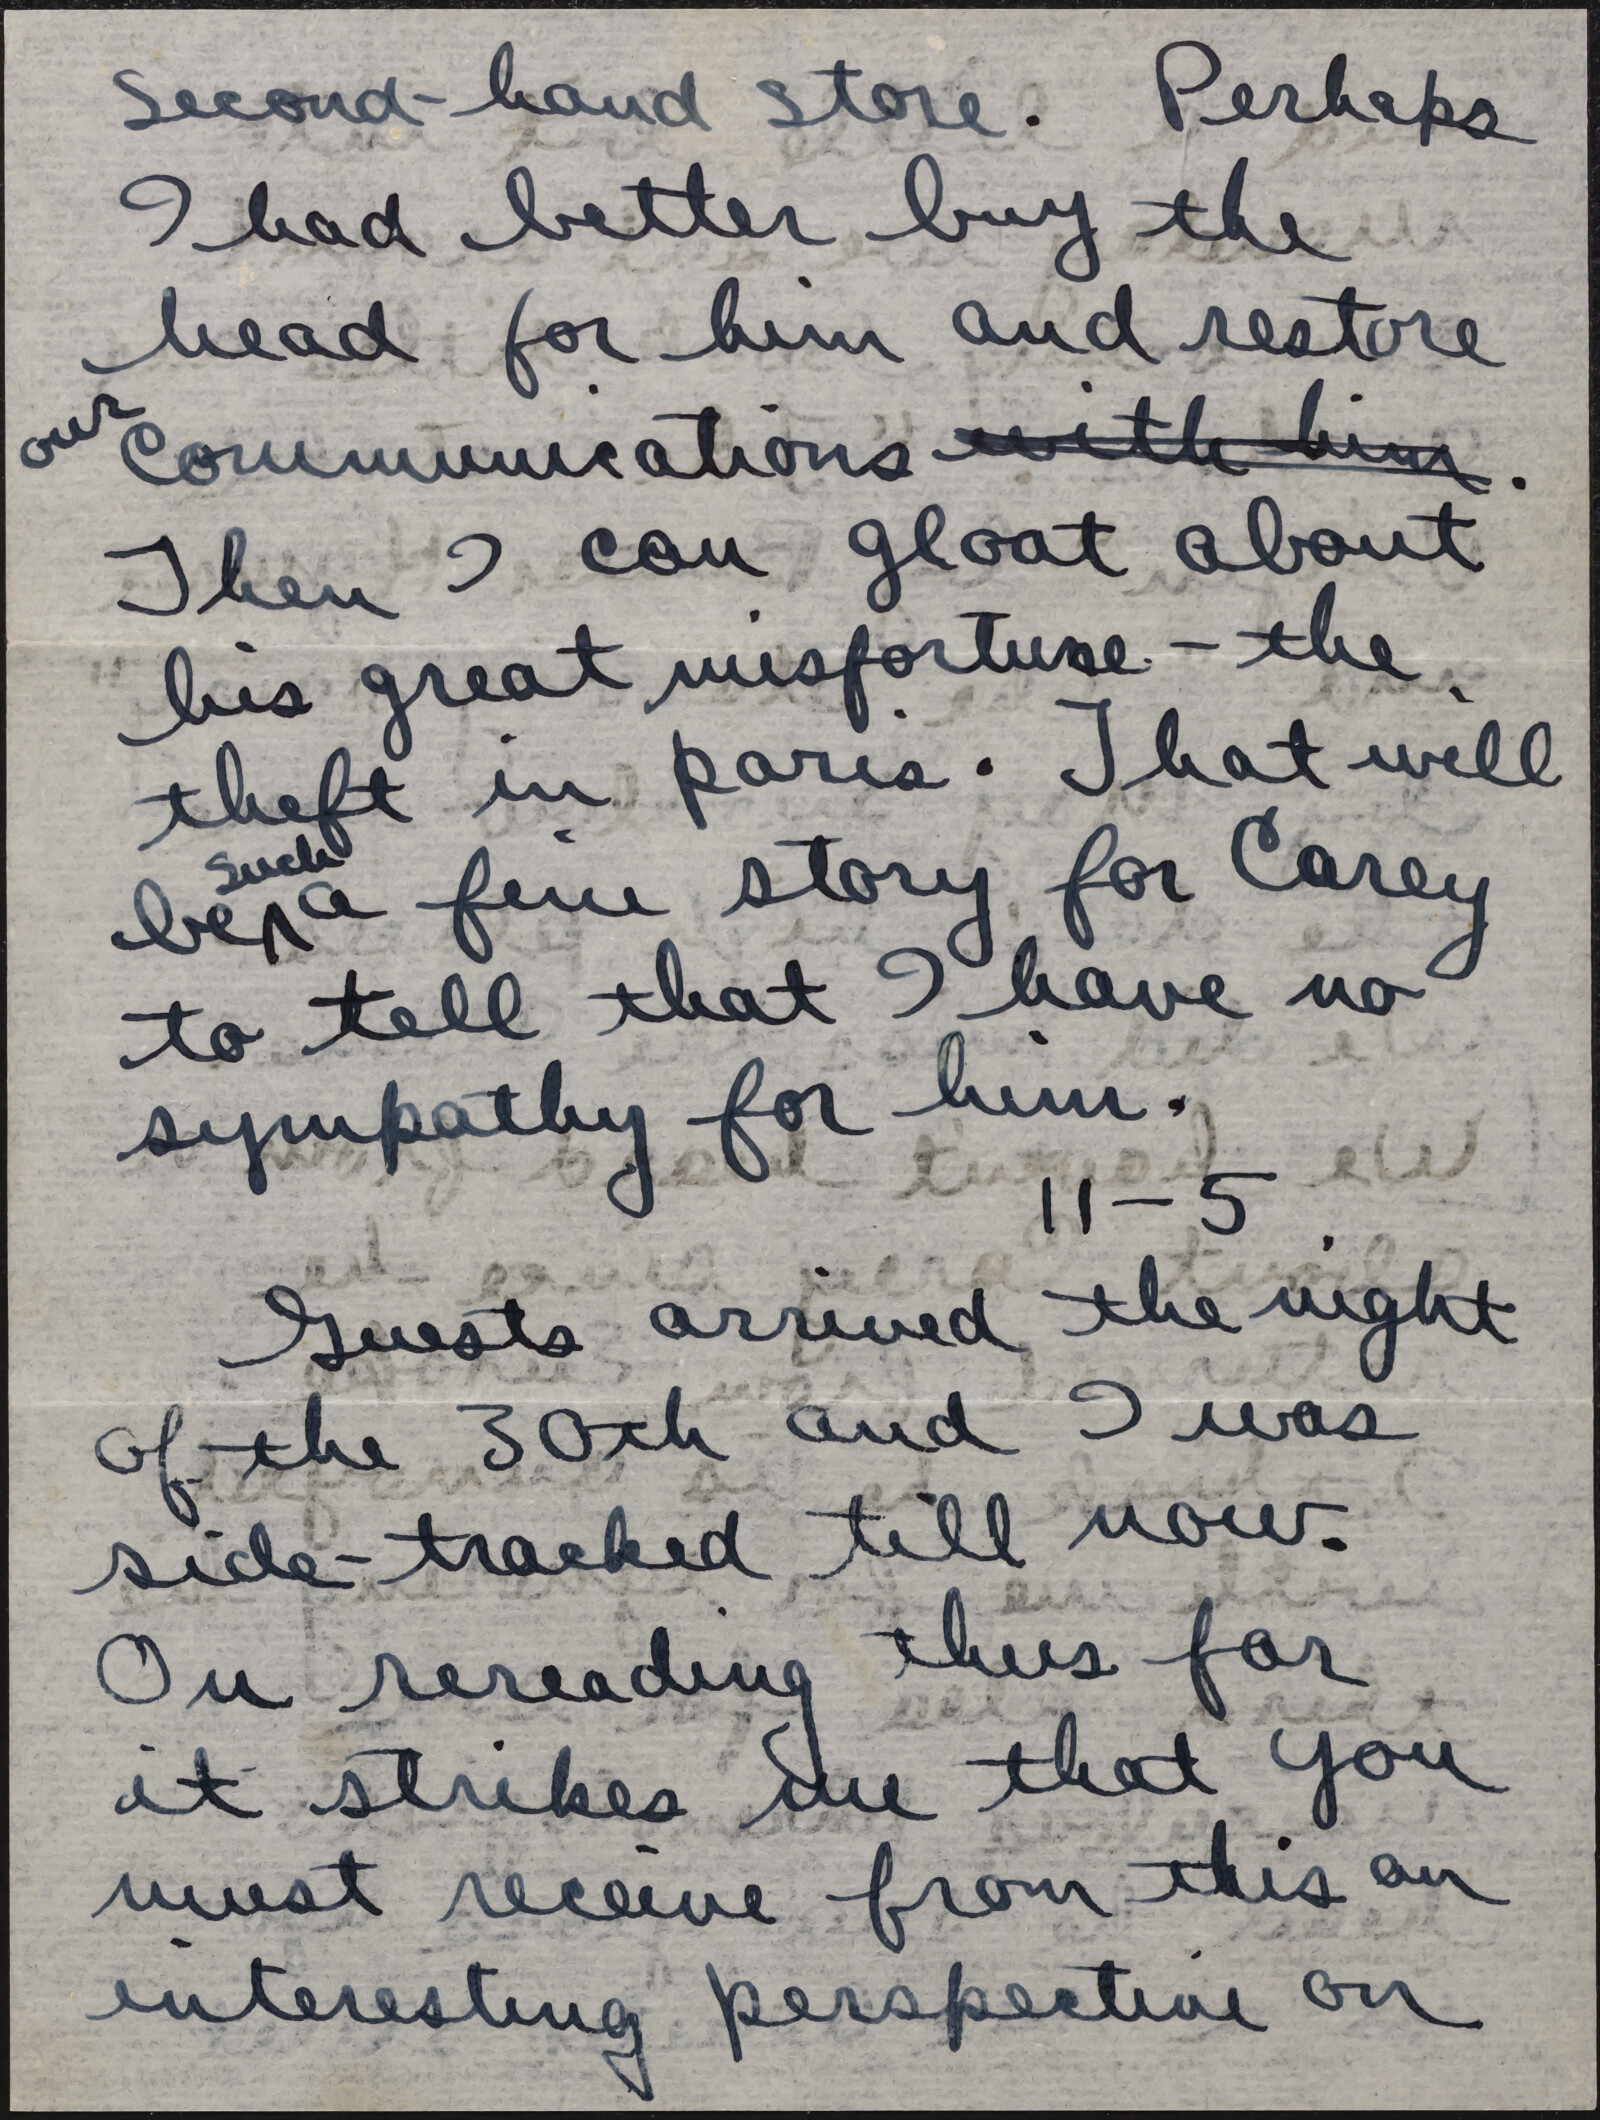 second-hand store. Perhaps
I had better buy the
head for him and restore
our communications with him.
Then I can gloat about
his great misfortune - the
theft in paris. That will
be such a fine story for Carey
to tell that I have no
sympathy for him.
11-5
Guests arrived the night
of the 30th and I was
side-tracked till now.
On rereading thus far
it strikes me that you
must receive from this an
interesting perspective on